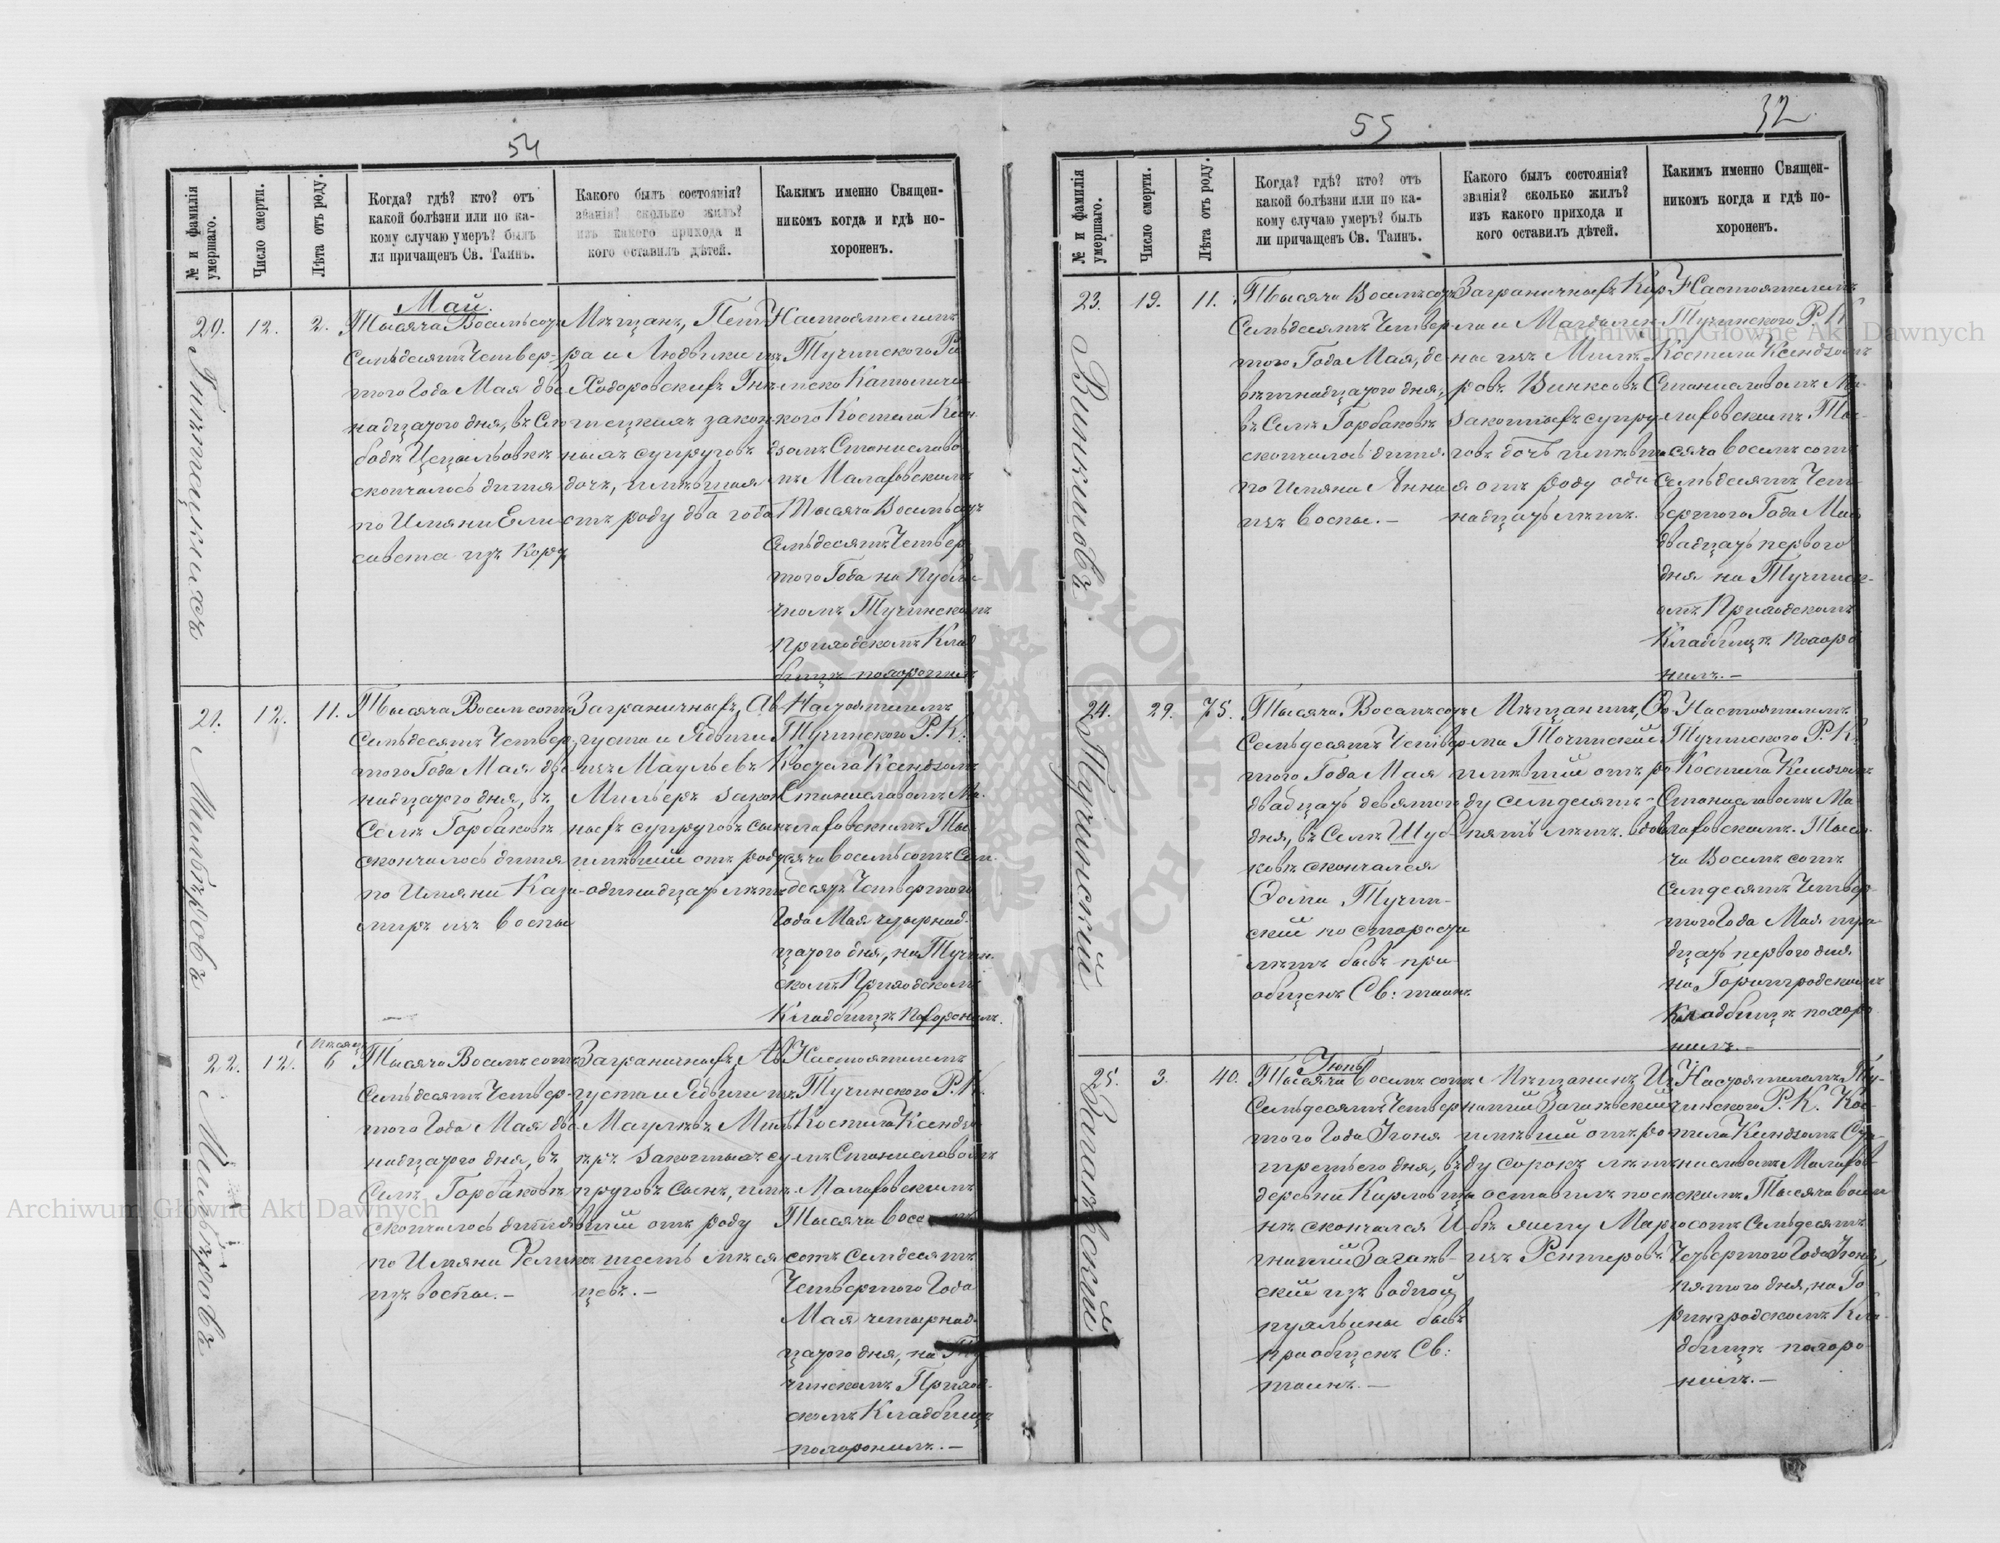 54
№ и фамилія умершаго.
Число смерти.
Лѣта отъ роду.
Когда? гдѣ? кто? отъ
какой болѣзни или по ка-
кому случаю умеръ? былъ
ли причащенъ Св. Таинъ.
Какого былъ состоянія?
званія? сколько жилъ?
изъ какого прихода и
кого оставилъ дѣтей.
Каким именно Священ-
никомъ когда и гдѣ по-
хороненъ.
20.
12.
2.
Май.
Тысяча Восемьсотъ
Семьдесятъ Четвер-
таго Года Мая две
надцатого дня, въ Сло
бодѣ
скончалось дитя
по Имяни Ели
савета изъ кору
Мѣщанъ, Пет
ра и Людвики изъ
Ходоровскихъ
закон
ныхъ супруговъ
дочь, имѣвшая
отъ роду два года
Настоятелемъ
Тучинского Ри
мско Католиче
кого Костела Ксен
дзомъ Станиславо
мъ Малаховскимъ
Тысяча Восемьсотъ
Семьдесятъ Четвер
того Года на
Тучинскомъ
Приходскомъ Клад
бищѣ похоронилъ
21.
Мильеровъ
12.
11.
Тысяча Восемсотъ
Семьдесятъ Четвер
того Года Мая две
надцатого дня, въ
Селѣ Горбаковѣ
скончалось дитя
по Имяни Кази
миръ изъ воспы
Заграничныхъ Ав
густа и Ядвиги
изъ Маульевъ
Мильеръ закон
ныхъ супруговъ сынъ
имѣвшій отъ роду
одинадцать лѣтъ
Настоятелемъ
Тучинского Р. К.
Костела Ксендзомъ
Станиславомъ Ма
лаховскимъ Ты
сяча восемьсотъ Сем
десятъ Четвертого
Года Мая четырнад
цатого дня, на Тучин
скомъ Приходскомъ
Кладбищѣ Похоронилъ.
22.
Мильеровъ
12.
6
Тысяча Восемьсотъ
Семьдесятъ Четвер
того Года Мая две
надцатого дня, въ
Селѣ Горбаковѣ
скончалось дитя
по Имяни
изъ воспы. —
Заграничныхъ Ав
густа и Ядвиги изъ
Маулевъ Миль
еръ законныхъ су
пруговъ Сынъ, имѣ
вшій отъ роду
шесть мѣся
цевъ. —
Настоятелемъ
Тучинского Р. К.
Костела Ксендзо
мъ Станиславомъ
Малаховскимъ
Тысяча восемь
сотъ Семдесятъ
Четвертого Года
Мая четырнад
цатого дня, на Ту
чинскомъ Приход
скомъ Кладбищѣ
похоронилъ. —
55
32
№ и фамилія умершаго.
Число смерти.
Лѣта отъ роду.
Когда? гдѣ? кто? отъ
какой болѣзни или по ка-
кому случаю умеръ? былъ
ли причащенъ Св. Таинъ.
Какого былъ состоянія?
званія? сколько жилъ?
изъ какого прихода и
кого оставилъ дѣтей.
Каким именно Священ-
никомъ когда и гдѣ по-
хороненъ.
23.
19.
11.
Тысяча Восемьсотъ
Семьдесятъ Четвер
того Года Мая, де
вятнадцатого дня,
въ Селѣ Горбаковѣ
скончалось дитя
по Имяни Анна
изъ воспы. —
Заграничныхъ Кар
ла и Магдален
ны изъ
законныхъ супру
говъ дочь имѣвша
я отъ роду оди
надцать лѣтъ.
Настоятелемъ
Тучинского Р. К.
Костела Ксендзомъ
Станиславомъ Ма
лаховскимъ Ты
сяча восемьсотъ
Семьдесятъ Чет
вертого Года Мая
двадцать первого
дня на Тучинск
омъ Приходскомъ
Кладбищѣ Похоро
нилъ. —
24.
Тучинскій
29.
75.
Тысяча Восемьсотъ
Семьдесятъ Четвер
того Года Мая
двадцать девятого
дня, въ Селѣ Шуб
ковѣ скончался
Фома Тучин
скій по старости
лѣтъ бывъ прі
общенъ Св: таинъ
Мѣщанинъ, Фо
ма Точинскій
имѣвшій отъ ро
ду семдесятъ
пять лѣтъ. вдов
Настоятелемъ
Тучинского Р. К.
Костела Ксендзомъ
Станиславомъ Ма
лаховскимъ. Тыся
ча Восемьсотъ
Семдесятъ Четвер
того Года Мая три
дцать первого дня
на Горинградскомъ
Кладбищѣ похоро
нилъ. —
25.
3.
40.
Іюнь
Тысяча восемьсотъ
Семьдесятъ Четвер
того Года Іюня
третьего дня, въ
деревни
скончался И
гнатій
скій изъ водной
пухлины бывъ
пріобщенъ Св:
таинъ. —
Мѣщанинъ Иг
натій
имѣвшій отъ ро
ду сорокъ лѣтъ
оставилъ посл
бѣ жену
изъ
Настоятелемъ Ту-
чинского Р. К. Кос
тела Ксендзомъ Ста
ниславомъ Малахов
скимъ Тысяча восем
сотъ Семьдесятъ
Четвертого Года Іюня
пятого дня, на Го
ринградскомъ Кла
дбищѣ похоро
нилъ. —
Archiwum Główne Akt Dawnych
Archiwum Główne Akt Dawnych